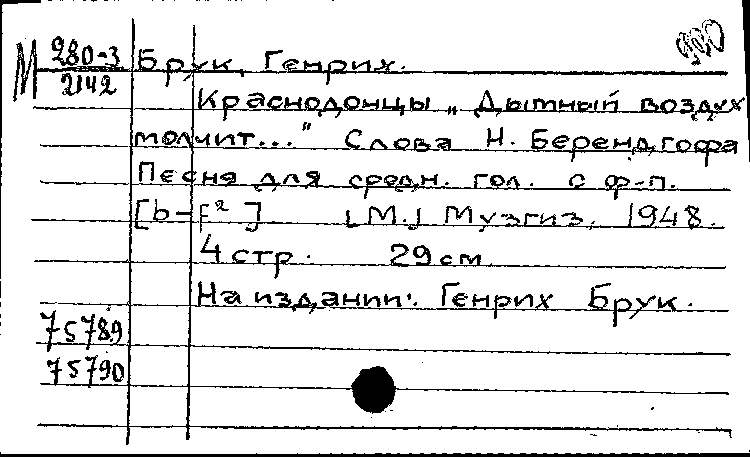 М 280-3 Брук, Генрих.
2142
Краснодонцы „Дымный воздух
молчит..." Слова Н. Берендгофа
Песня для средн. гол. с ф-п.
[b-f²] [М.] Музгиз, 1948.
4 стр. 29 см
На издании: Генрих Брук.
75789
75790